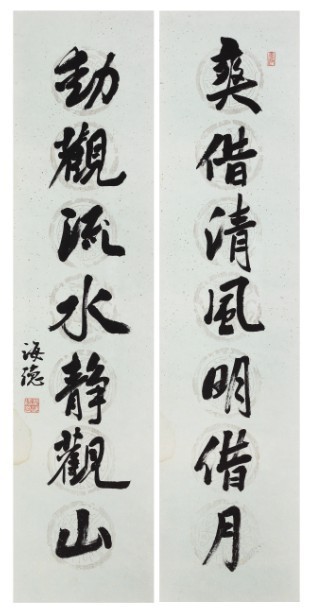 爽借清風明借月
動觀流水靜觀山
海德